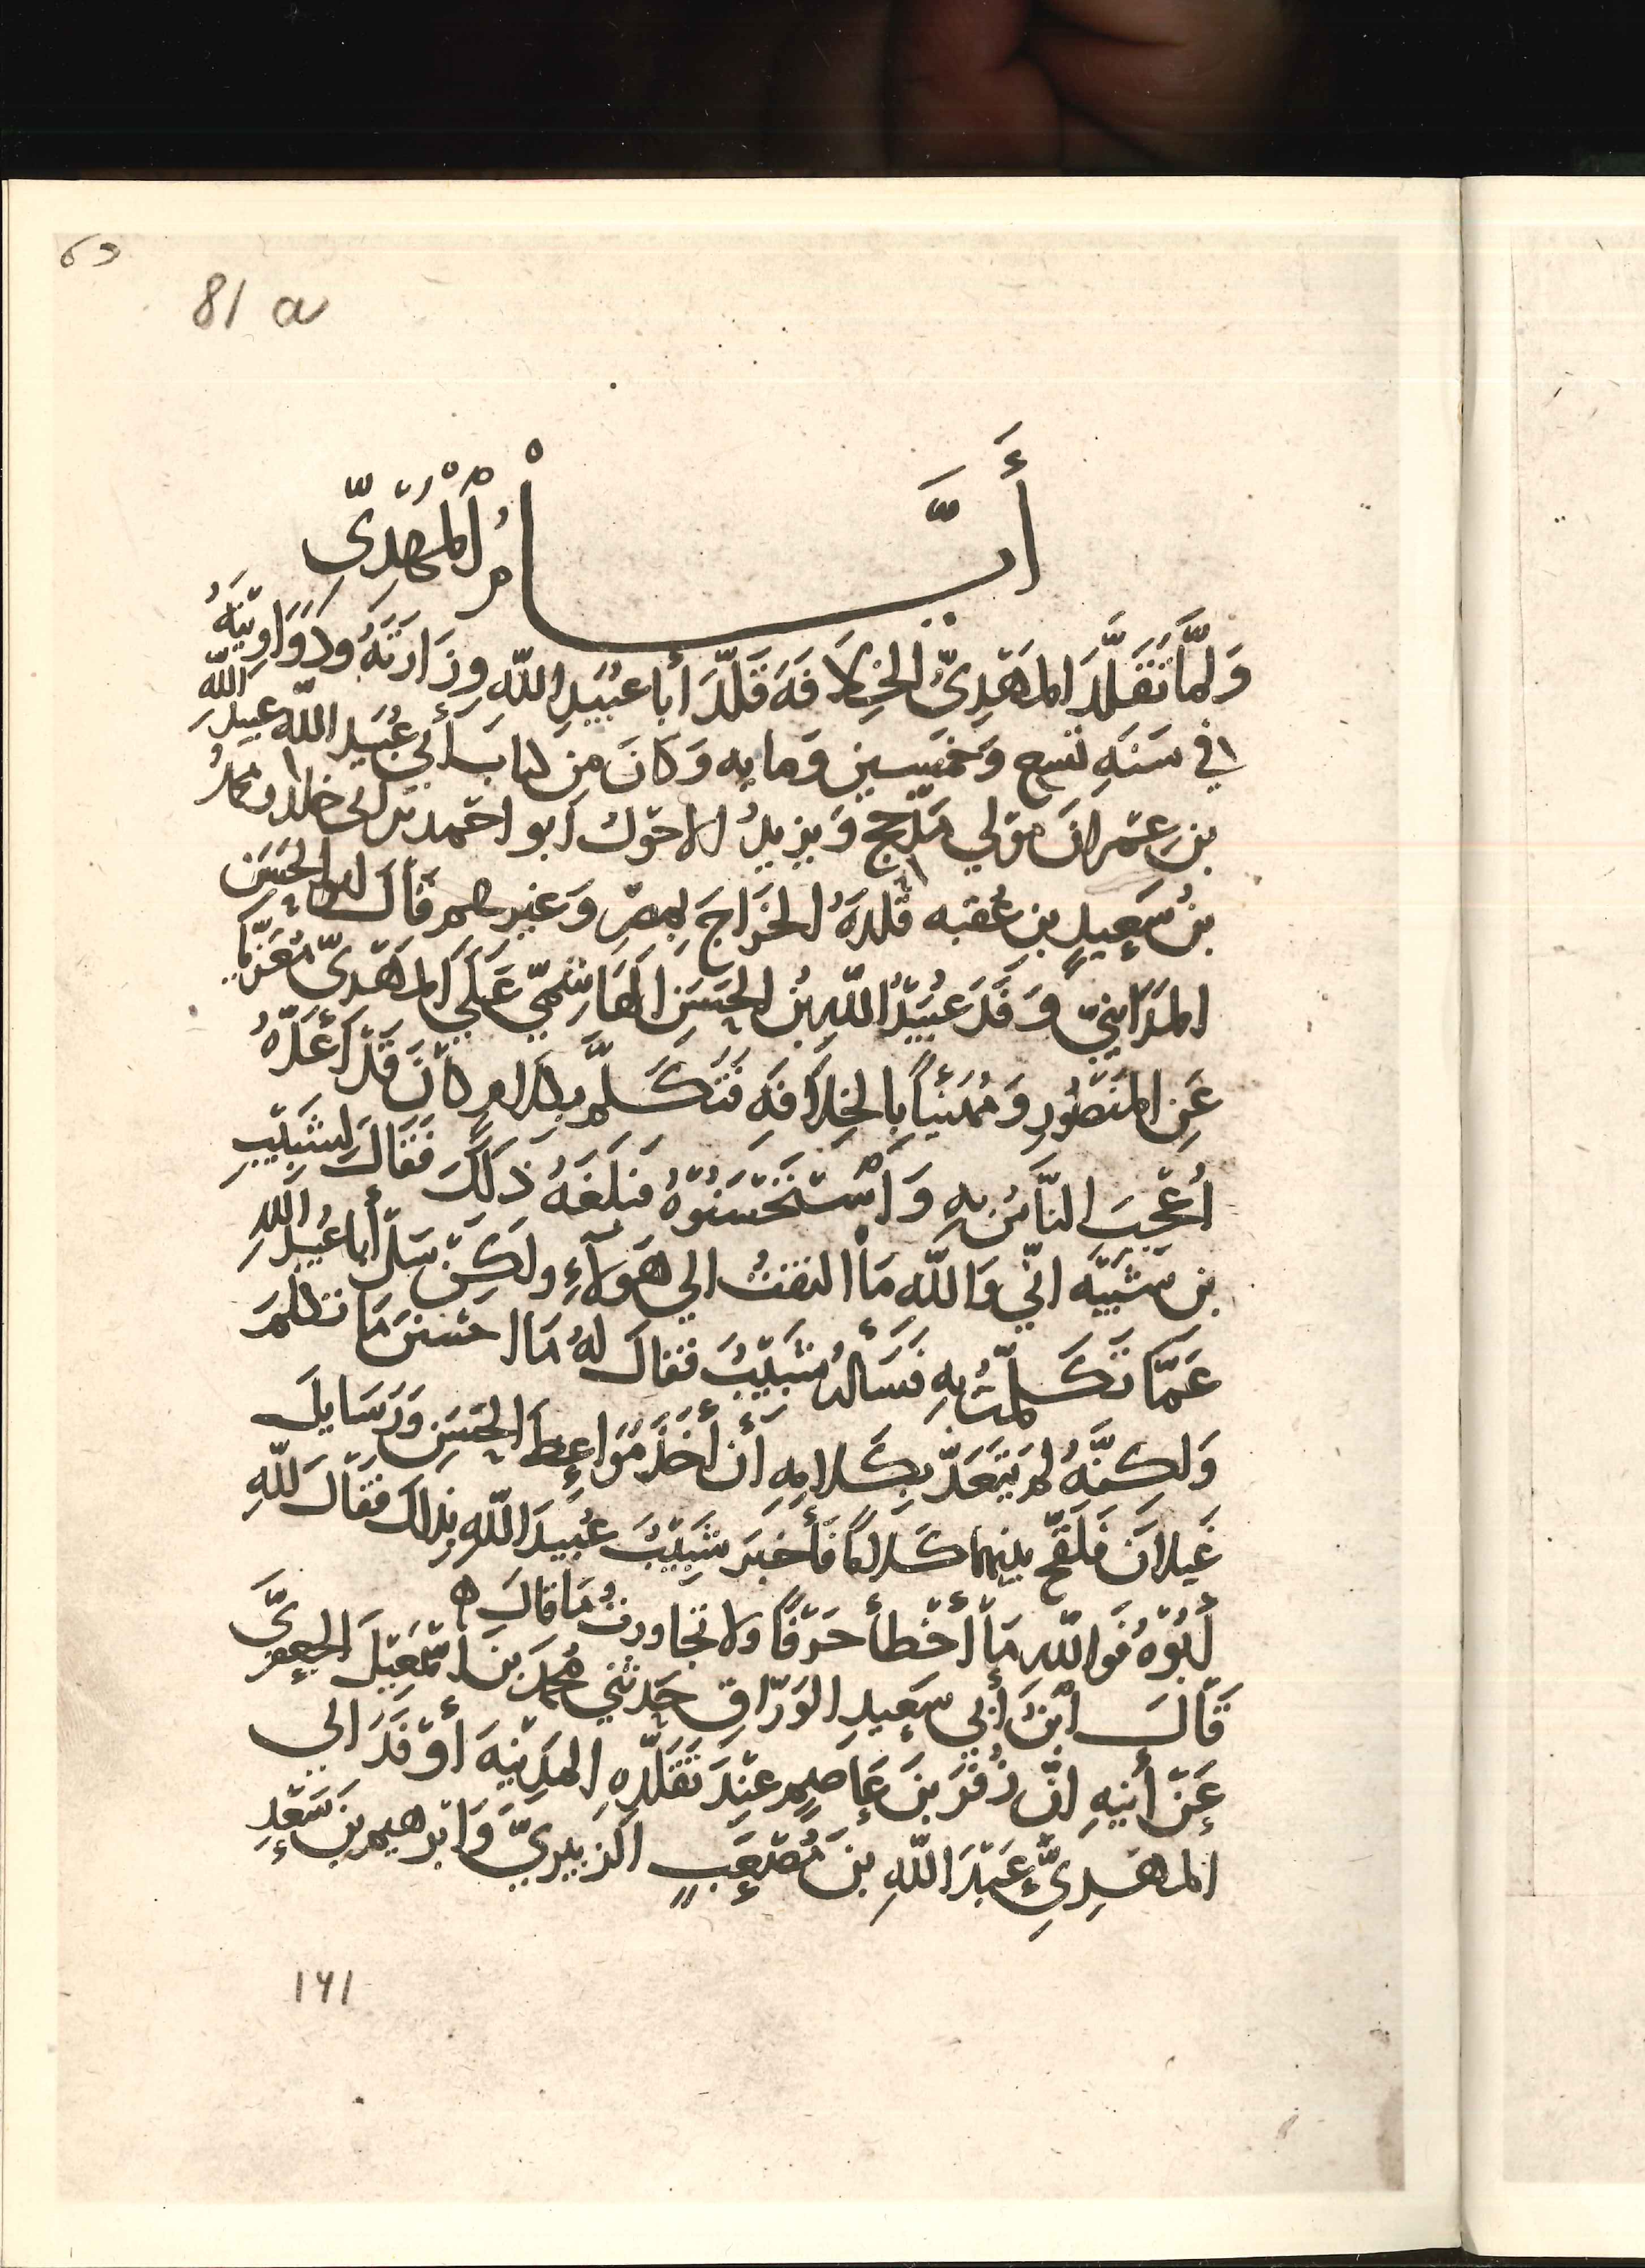 81 a
أَيَّامُ الْمَهْدِيّ
وَلَمَّا تَقَلَّدَ المَهْدِيُّ الخِلَافَةَ قَلَّدَ أبا عُبَيدِ اللهِ وِزَارَتَهُ ودَوَاوِينَهُ
في سَنَةِ تسع وَخمسين وَمايه وَكانَ مِن كتاب أبي عُبَيد الله عبيد الله
بن عِمْرانَ مَوْلي مَذْحِج وَيَزيدُ الاحْوَلُ أبو احْمد بن أبي خالد ومحمدُ
بنُ سَعِيدِ بنِ عُقبه قلدهُ الخَرَاجَ بمصرَ وَغيرهم قَالَ أبو الحَسَن
المَدَاينيّ وَفَدَ عُبَيْدُ اللهِ بنُ الحَسَن الهَاشميّ عَلَي المَهْدِيّ مُعَزّيا
عَنِ المَنْصُورِ وَمُهَنئاً بِالخِلَافَهِ فَتَكَلَّمَ بكلامٍ كانَ قَدْ أَعَدَّهُ
أُعْجِبَ النَّاسُ بِهِ وَاسْتَحْسَنُوْهُ فبَلَغَهُ ذلكَ فَقَالَ لِشَبِيْبِ
بن شَيْبَه انّي وَاللهِ مَا التفتُ الي هَولاءِ ولَكِنْ سَلْ أبا عُبَيدِ اللهِ
عَمَّا تَكَلّمتُ بِهِ فَسَألهُ شَبِيْبُ فقالَ لهُ مَا احْسَنَ مَا تكلمَ
وَلكِنَّهُ لم يَتَعَدّ بِكَلامِهِ أنْ أخَذَ مَوَاعِظَ الحَسَنِ وَرَسَايلَ
غَيلانَ فَلَقَّحَ بينهما كَلاماً فَأخبَرَ شَبِيْبُ عُبَيدَ اللهِ بذلك فقَالَ للهِ
أَبُوْهُ فَوالله مَا أخْطأ حَرْفًا ولا تجاوزتُ مَا قَالَ ه
قَالَ ابْنُ أبي سَعِيدِ الوَرّاقِ حَدثني مُحمدُ بن اسْمَعيْلَ الجعفريَّ
عَنْ أبيهِ انّ زُفَرَ بنَ عَاصِمٍ عِنْدَ تَقَلُّدِهِ المَدِيْنَهَ أوْفَدَ الي
المَهْدِيِّ عَبْدَ اللهِ بنَ مُصْعَبٍ الزبيريَّ وَابْرَهيم بنَ سَعْدِ
١٤١